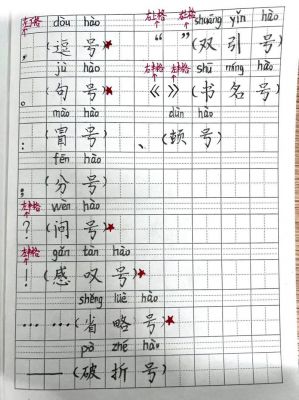 左下格 dòu hào 左上格 右上格 shuāng yǐn hào
， (逗 号)★ “ ” (双 引 号)
jù hào 左半格 右半格 shū míng hào
。 (句 号)★ 《 》 (书 名 号)
mào hào dùn hào
： (冒 号) 、 (顿 号)
fēn hào
； (分 号)
左半格 wèn hào
？ (问 号)★
左半格 gǎn tàn hào
！ (感 叹 号)★
shěng lüè hào
…… (省 略 号)★
pò zhé hào
—— (破 折 号)